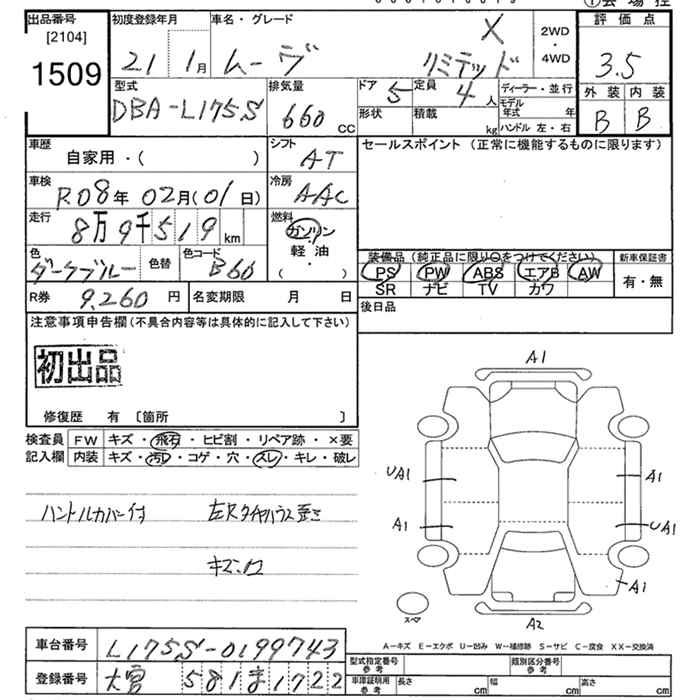 出品番号
[2104]
1509
初度登録年月
21 1月
車名・グレード
ムーヴ
X
リミテッド
2WD
・
4WD
評価点
3.5
外装 内装
B B
型式
DBA-L175S
排気量
660 CC
ドア
5
定員
4 人
形状
積載
kg
ディーラー・並行
モデル年式 年
ハンドル 左・右
車歴
自家用・( )
シフト
AT
セールスポイント (正常に機能するものに限ります)
車検
R08年 02月(01日)
冷房
AAC
走行
8万9千519km
燃料
ガソリン
軽・油
( )
色
ダークブルー
色替
色コード
B60
装備品 (純正品に限り○をつけてください)
PS PW ABS エアB AW
SR ナビ TV カワ
新車保証書
有・無
R券 9,260 円
名変期限 月 日
後日品
注意事項申告欄(不具合内容等は具体的に記入して下さい)
初出品
修復歴 有 [箇所 ]
検査員
記入欄
FW キズ・飛石・ヒビ割・リペア跡・×要
内装 キズ・汚レ・コゲ・穴・スレ・キレ・破レ
ハンドルカバー付
左Rタイヤハウス歪ミ
A1
UA1
A1
A1
UA1
A1
スペア
A2
A-キズ E-エクボ U-凹み W-補修跡 S-サビ C-腐食 XX-交換済
車台番号 L175S-0199743
登録番号 大宮 581ま1722
型式指定番号
参考
類別区分番号
参考
車庫証明用
参考
長さ cm 幅 cm 高さ cm